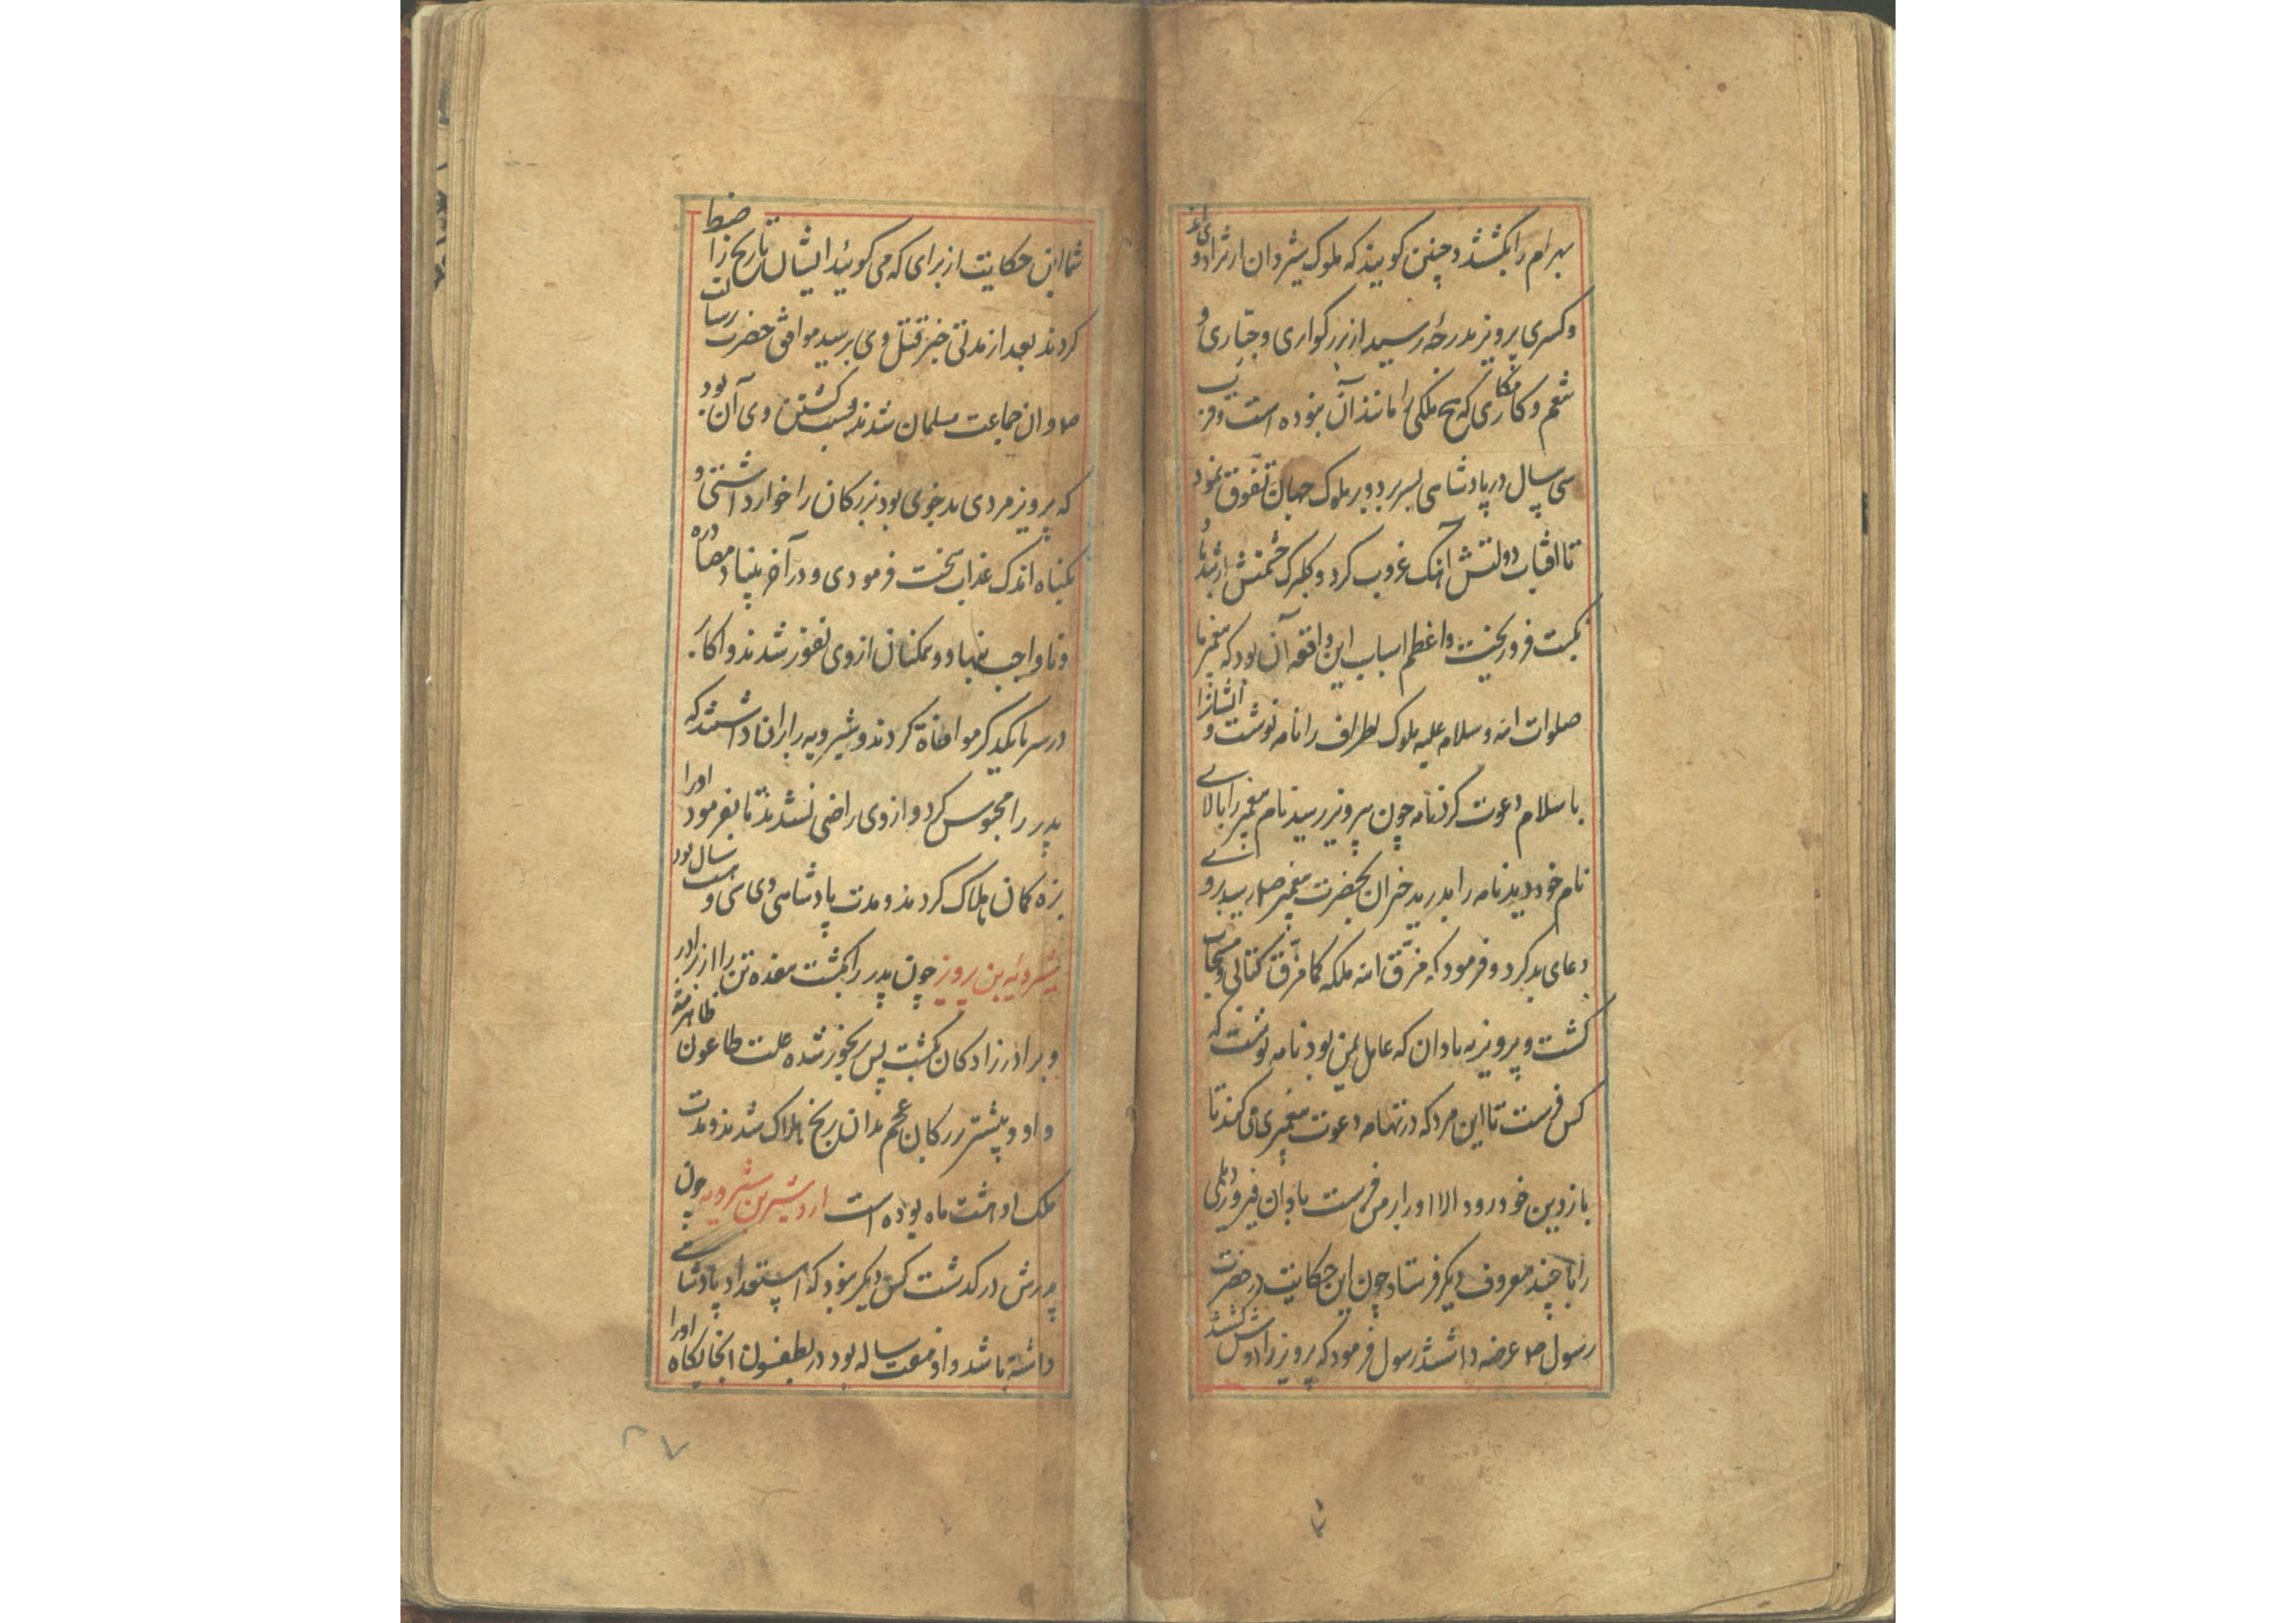 بهرام را بکشند و چنین کویند که ملوک شروان از نژاد وی اند
و کسری پرویز بدرجۀ رسید از بزرکواری و جباری و
تنعم و کامکاری که هیچ ملکی را مانند آن نبوده است و قریب
سی سال در پادشاهی بسر برد و بر ملوک جهان تفوق نمود
تا افتاب دولتش آهنک غروب کرد و کلبرک حشمتش از تندباد
نکبت فرو ریخت و اعظم اسباب این واقعه آن بود که پیغمبر ما
صلوات الله و سلامه علیه ملوک اطراف را نامه نوشت و ایشانرا
باسلام دعوت کرد نامه چون پرویز رسید نام پیغمبر را بالای
نام خود دید نامه را بدرید خبر ان بحضرت پیغمبر صلم رسید بر وی
دعای بد کرد و فرمود که مزّق الله ملکه کما مزّق کتابی و مستجاب
کشت و پرویز به بادان که عامل یمن بود نامه نوشت که
کس فرست تا این مرد که در تهامه دعوت پیغمبری می کند تا
باز دین خود رود الا او را بر من فرست بادان فیروز دیلمی
را با چند معروف دیکر فرستاد چون این حکایت در حضرت
رسول صلم عرضه داشتند رسول فرمود که پرویز را دوش کشتند
شما این حکایت از برای که می کوئید ایشان تاریخ را ضبط
کردند بعد از مدتی خبر قتل وی برسید موافق حضرت رسالت
صلم و ان جماعت مسلمان شدند و سبب کشتن وی آن بود
که پرویز مردی بدخوی بود بزرکان را خوار داشتی و
بکناه اندک عذاب سخت فرمودی و در آخر بنیاد مصادره
و ناواجب نهاد و همکنان از وی نفور شدند و اکابر
در سر با یکدیکر مواطاة کردند و شیرویه را بر ان داشتند که
پدر را محبوس کرد و از وی راضی نشدند تا بفرمود او را
بزه کمان هلاک کردند و مدت پادشاهی وی سی و هشت سال بود
شیرویه بن پرویز چون پدر را بکشت هفده تن را از برادر
و برادرزادکان بکشت پس رنجور شده علت طاعون ظاهر شد
و او و بیشتر بزرکان عجم بدان رنج هلاک شدند و مدت
ملک او هشت ماه بوده است اردشیر بن شیرویه چون
پدرش در کذشت کس دیکر نبود که استعداد پادشاهی
داشته باشد و او هفت ساله بود در انجایکاه او را